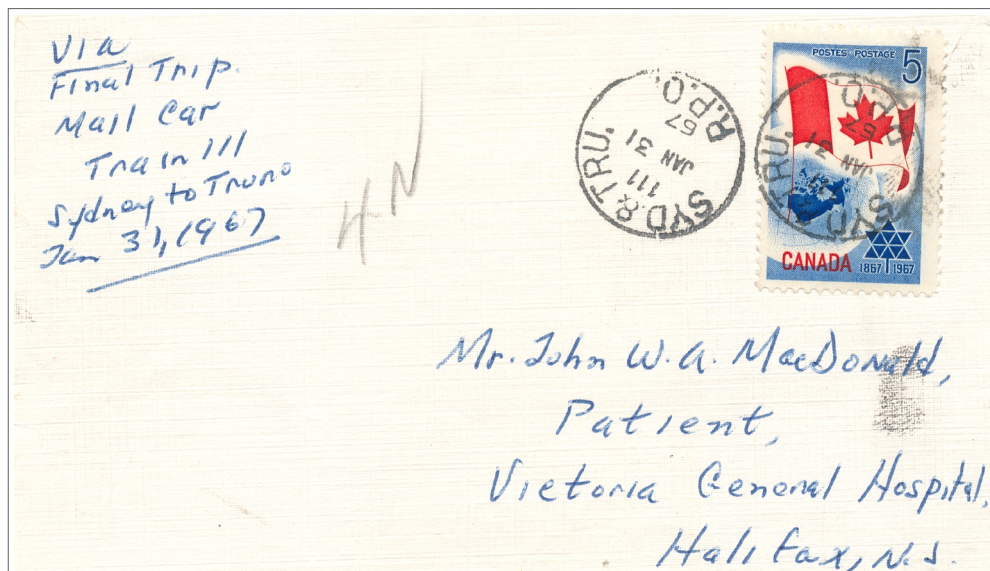 Via
Final Trip.
Mail Car
Train 111
Sydney to Truro
Jan 31, 1967
4N
SYD & TRU.
111
JAN 31
67
R.P.O.
POSTES POSTAGE 5
SYD & TRU.
111
JAN 31
67
R.P.O.
CANADA 1867 1967
Mr. John W. A. MacDonald,
Patient,
Victoria General Hospital,
Halifax, N.S.